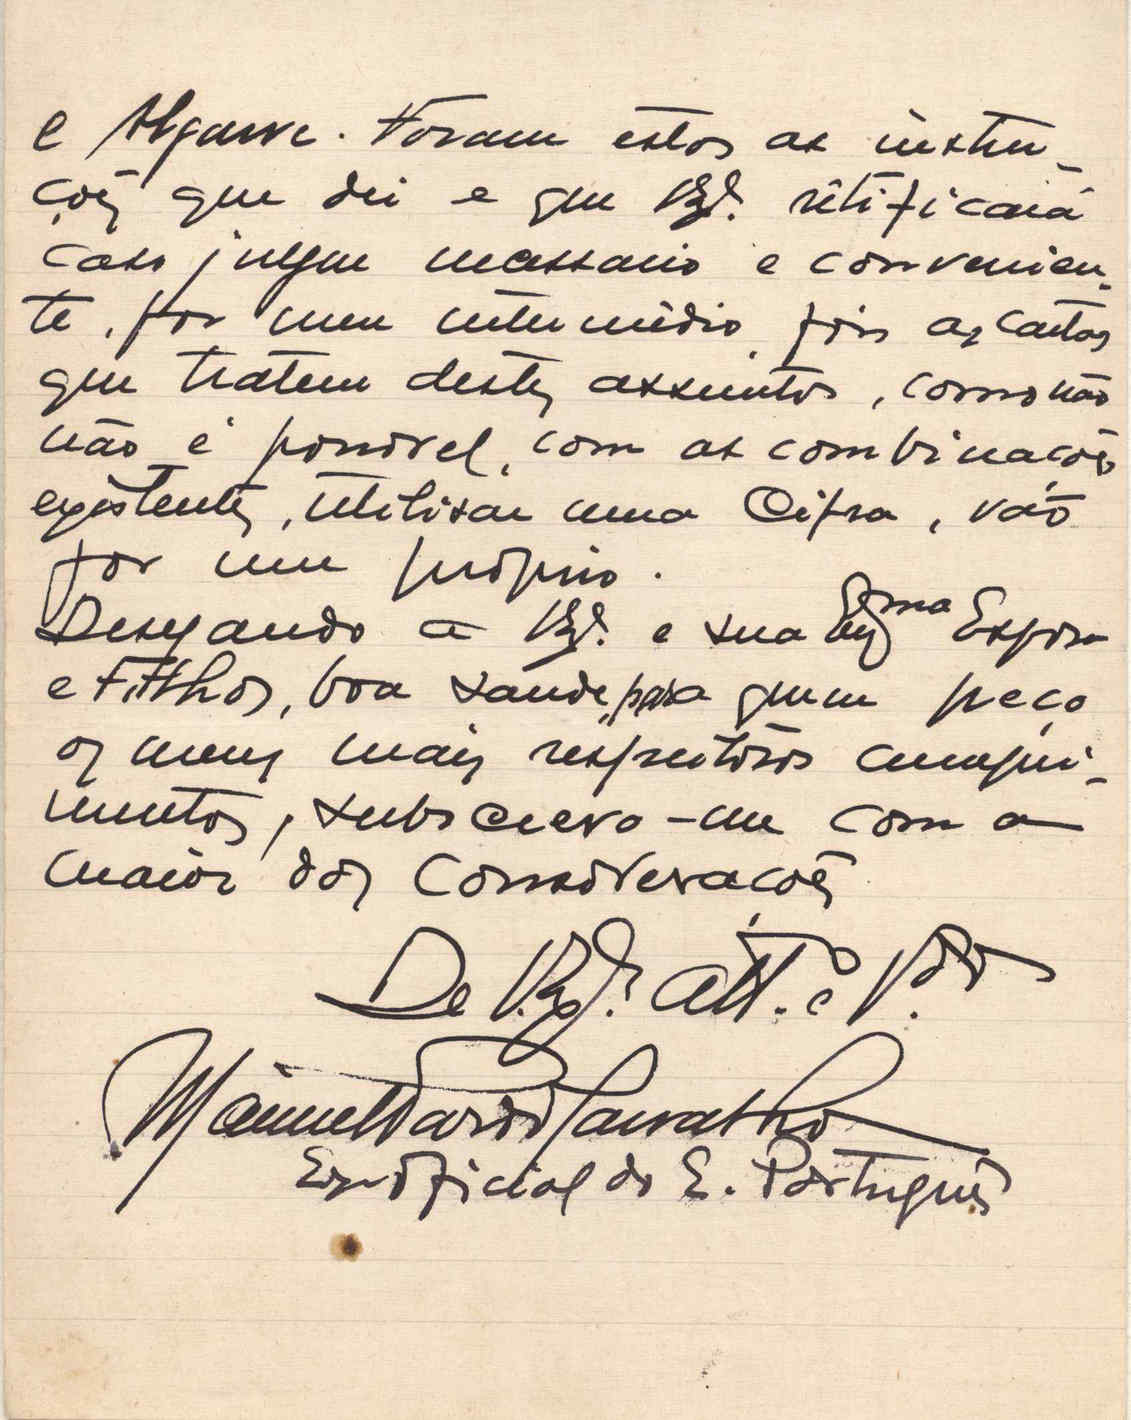 e Algarve. Foram estas as instru-
ções que dei e que V.Exª. retificará
caso julgue necessario e convenien-
te, por meu intermédio, pois as cartas
que tratem destes assuntos, como não
não é possivel, com as combinações
existentes, utilisar uma Cifra, vão
por um próprio.
Desejando a V.Exª. e sua Exma Espôsa
e Filhos, boa saude, para quem peço
os meus mais respeitosos cumpri-
mentos, subscrevo-me com a
maior das Considerações
De V.Exª. att.º e V.
Manuel Carvalho
Ex oficial do E. Português